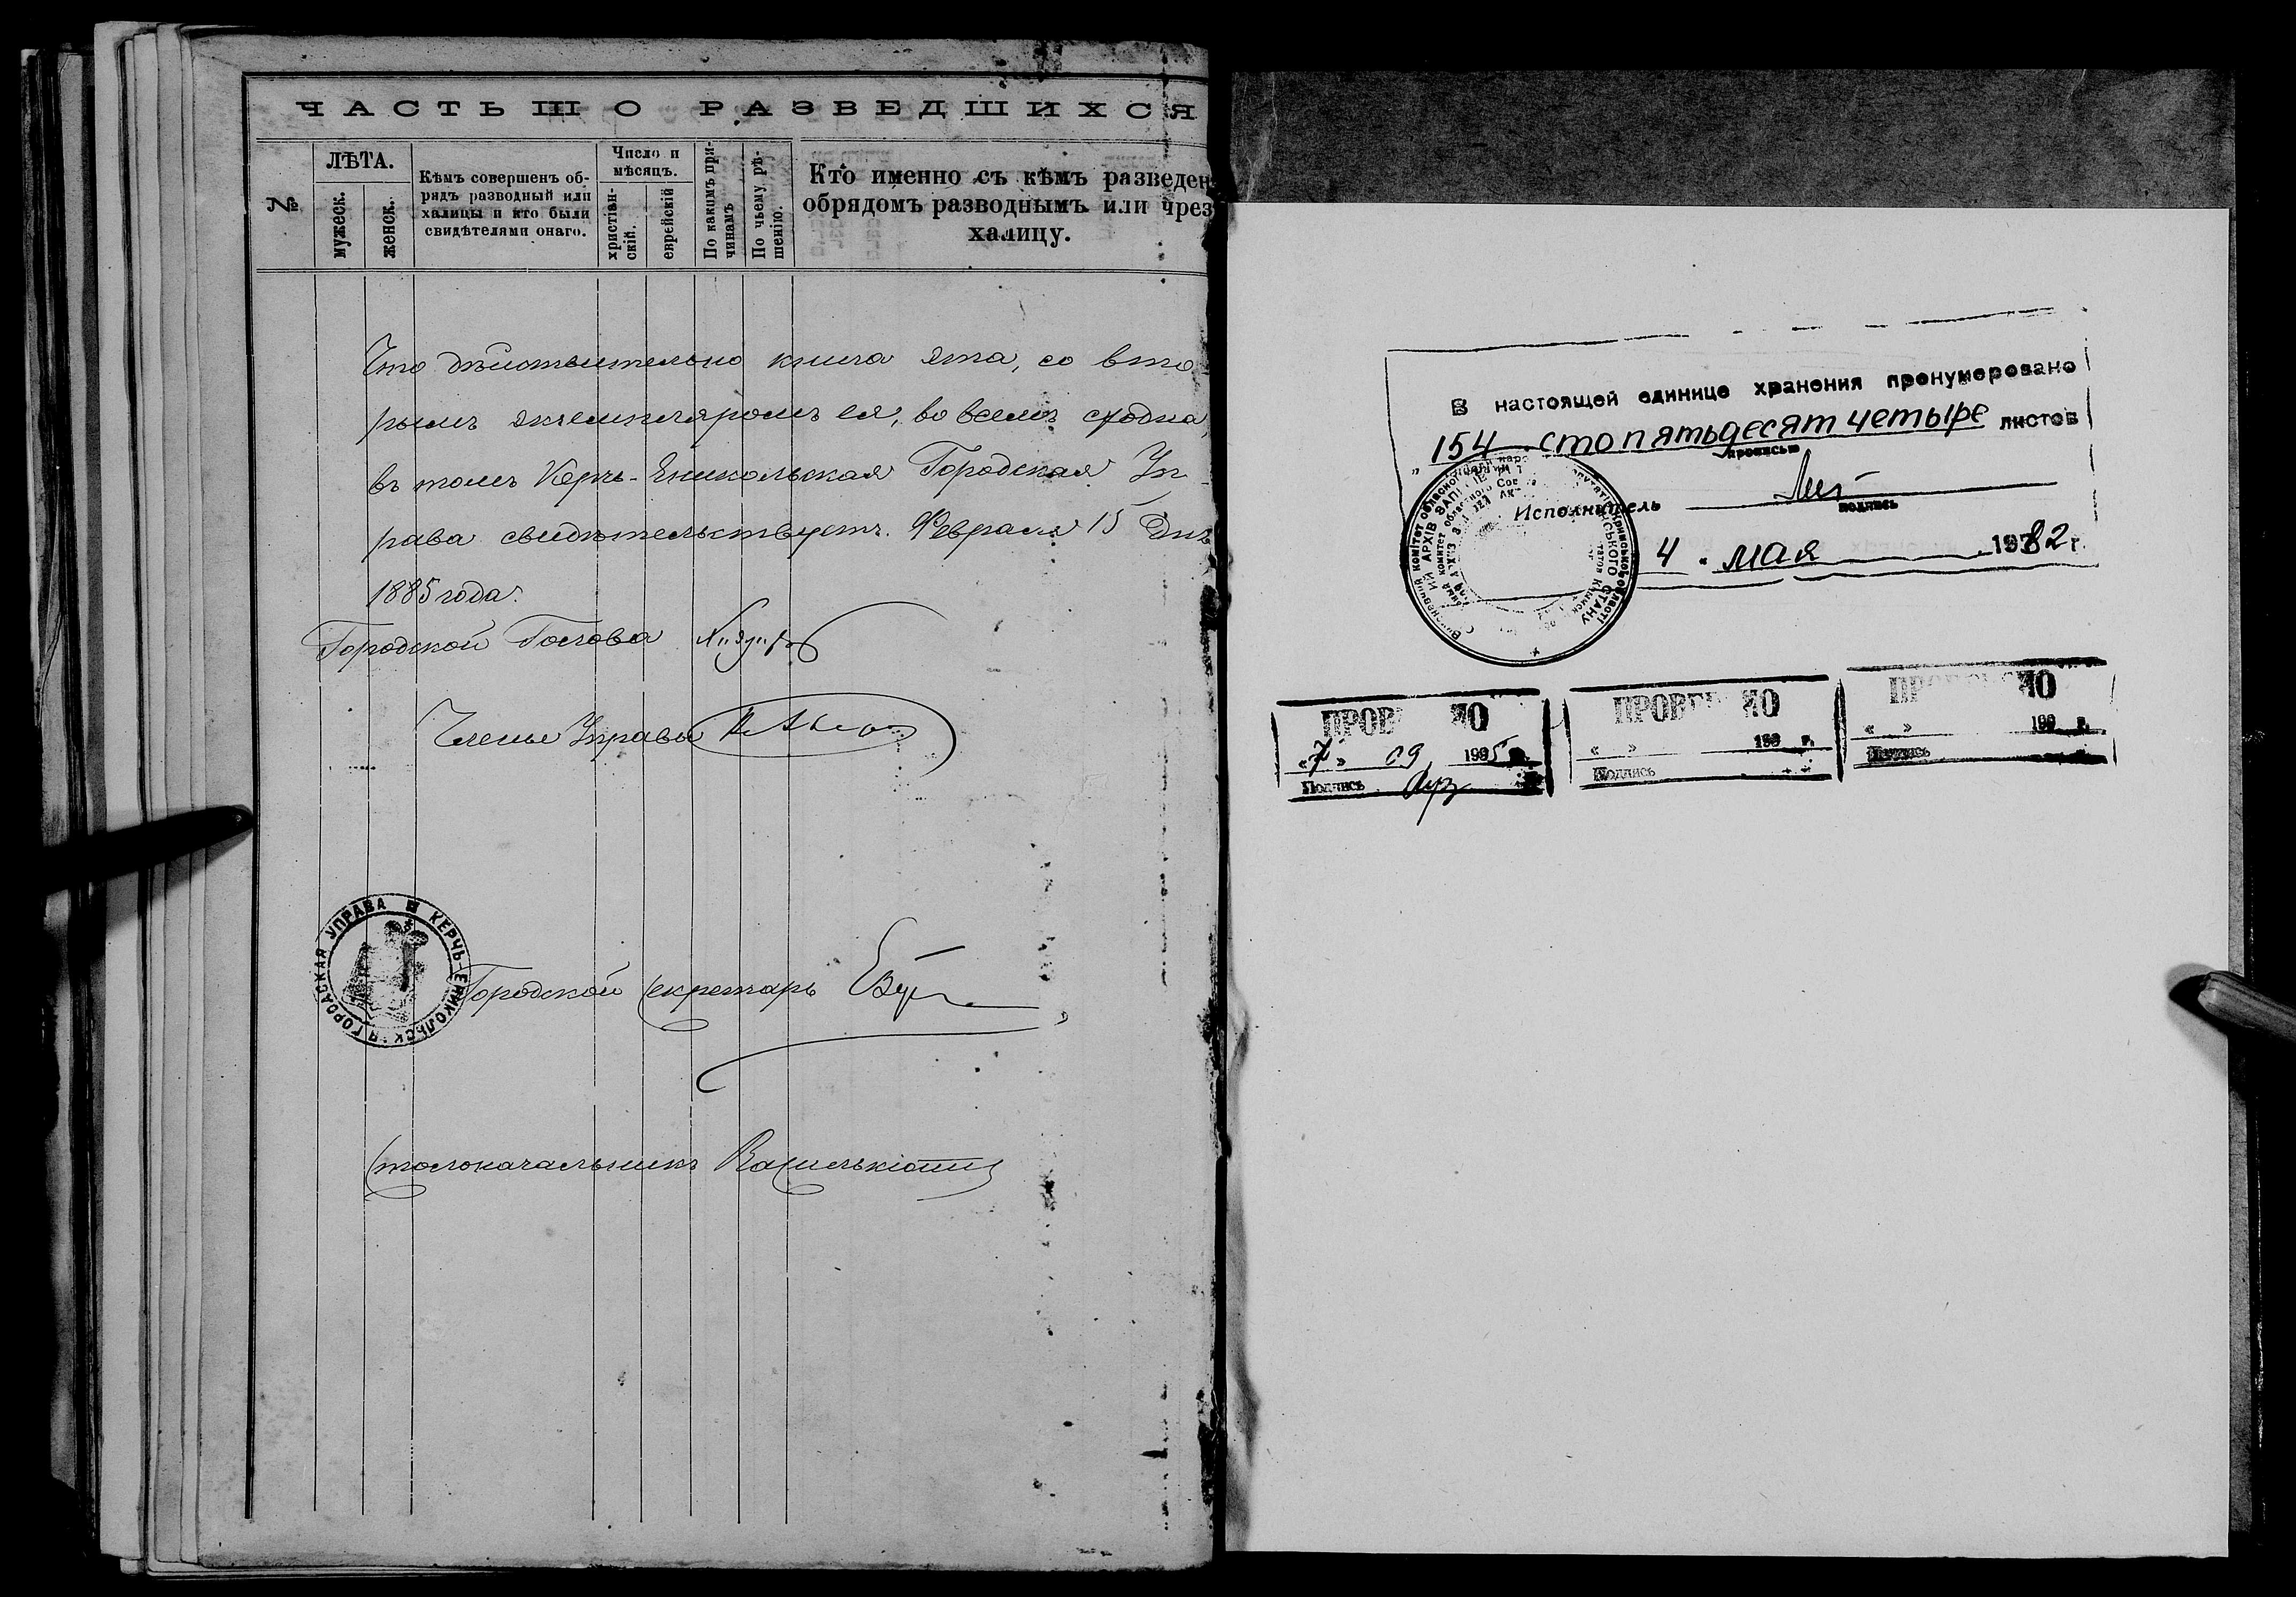 ЧАСТЬ III О РАЗВЕДШИХСЯ
№
ЛѢТА.
мужеск.
женск.
Кѣмъ совершенъ об-
рядъ разводный или
халицы и кто были
свидѣтелями онаго.
Число и
мѣсяцъ.
христіан-
скій.
еврейскій
По какимъ при-
чинамъ
По чьему рѣ-
шенію.
Кто именно съ кѣмъ разведен
обрядомъ разводнымъ или чрез
халицу.
Что дѣйствительно книга эта, со вто
рымъ экземпляромъ ея, во всемъ сходна,
въ томъ Керчь-Еникольская Городская Уп-
рава свидѣтельствуетъ. Февраля 15 дня
1885 года.
Городской Голова
Члены Управы
УПРАВА КЕРЧЬ-ЕНИКОЛЬСК Я ГОРОДСКАЯ
Городской Секретарь
Столоначальникъ
В настоящей единице хранения пронумеровано
„ 154 сто пятьдесят четыре листов
прописью
Исполнитель
подпись
4 " мая 1982 г.
ПРОВ НО
« 7 » 09 1995 г.
Подпись
ПРОВЕ НО
« » 199 г.
Подпись
ПРО НО
« » 199 г.
Подпись